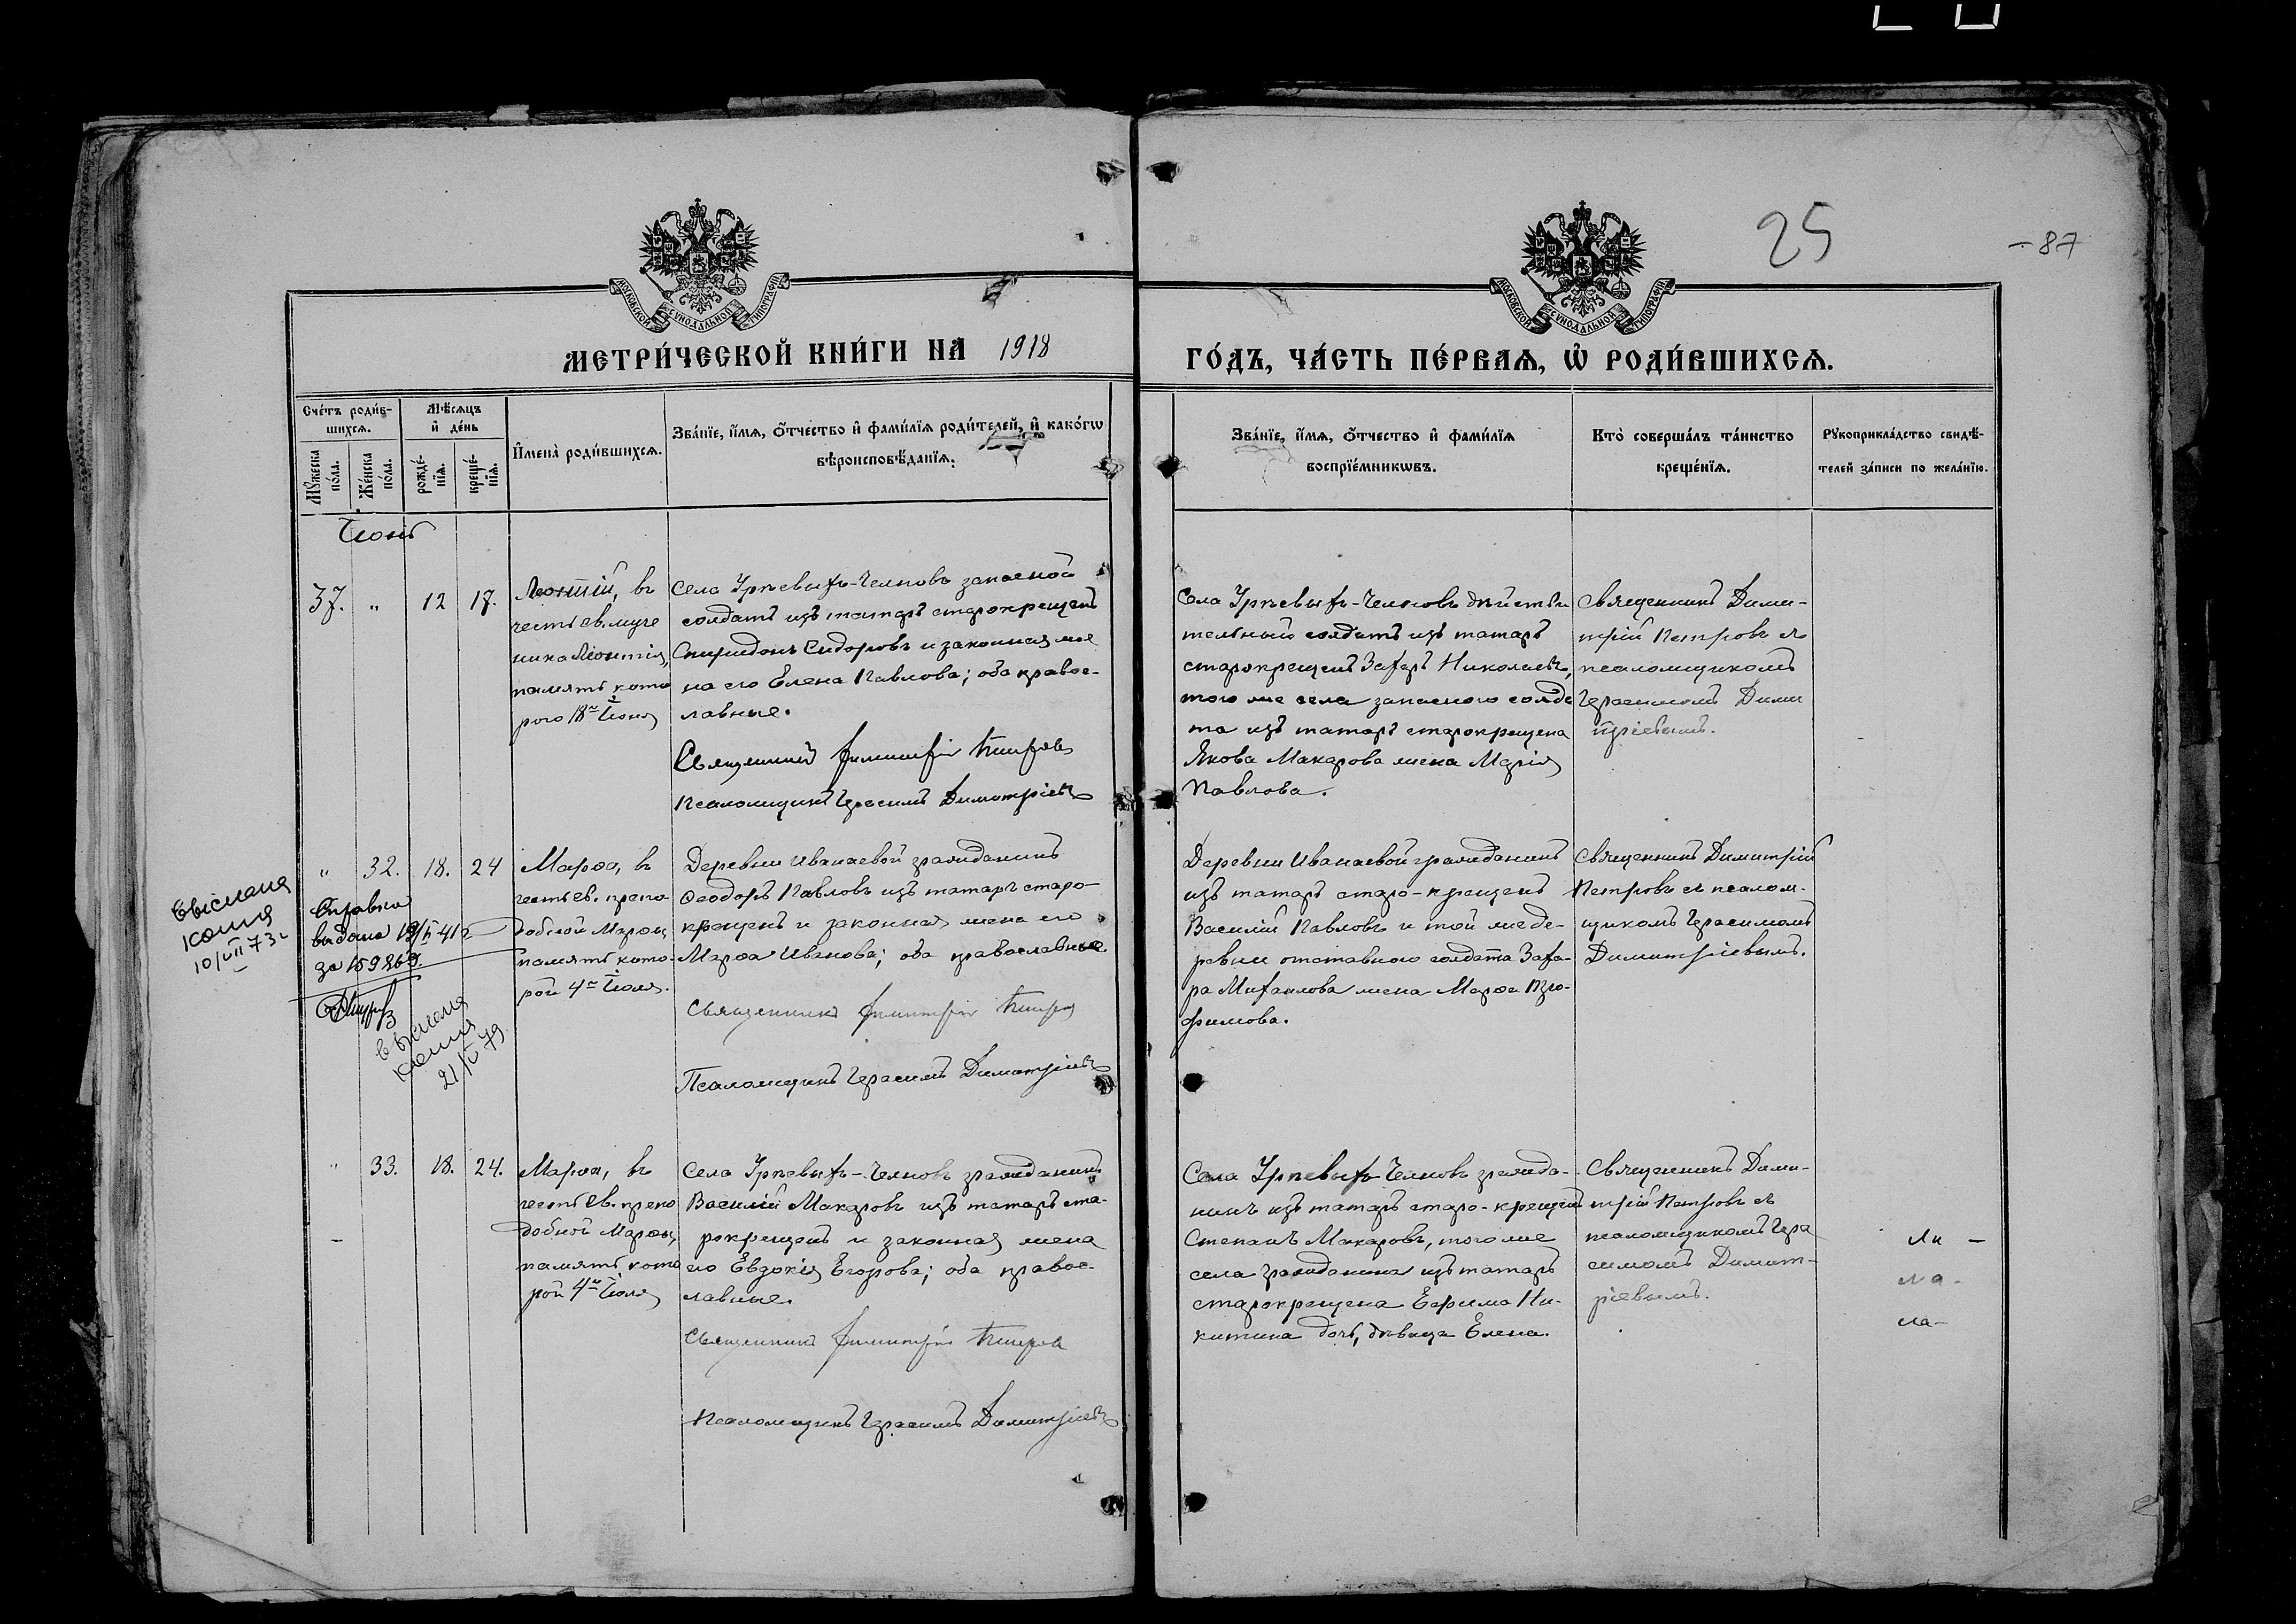 25
-87
МОСКОВСКОЙ СѴНОДАЛЬНОЙ ТИПОГРАФІИ
МОСКОВСКОЙ СѴНОДАЛЬНОЙ ТИПОГРАФІИ
МЕТРИ́ЧЕСКОЙ КНИ́ГИ НА 1918
ГО́ДЪ, ЧА́СТЬ ПЕ́РВАѦ, Ѡ҆ РОДИ́ВШИХСѦ.
Сче́тъ роди́в-
шихсѧ.
Мѣ́сѧцъ
и҆ де́нь
Мꙋ́жеска
по́ла.
Же́нска
по́ла.
рожде́-
нїѧ.
креще́-
нїѧ.
И҆мена̀ роди́вшихсѧ.
Зва́нїе, и҆́мѧ, ѻ҆́тчество и҆ фами́лїѧ роди́телей, и҆ како́гѡ
вѣроисповѣ́данїѧ.
Зва́нїе, и҆́мѧ, ѻ҆́тчество и҆ фами́лїѧ
воспрїе́мникѡвъ.
Кто̀ соверша́лъ та́инство
креще́нїѧ.
Рꙋкоприкла́дство свидѣ́-
телей за́писи по жела́нїю.
Іюнь
37. " 12 17.
Леонтій, въ
честь св. муче
ника Леонтія,
память кото
рого 18го Іюня
Села Урѣевыхъ-Челновъ запасной
солдатъ изъ татаръ старокрещенъ
Спиридонъ Сидоровъ и законная же
на его Елена Павлова; оба правос-
лавные.
Священникъ Димитрій Петровъ
Псаломщикъ Герасимъ Димитріевъ
Села Урѣевыхъ-Челновъ дѣйстви
тельный солдатъ изъ татаръ
старокрещенъ Захаръ Николаевъ,
того же села запасного солда
та изъ татаръ старокрещена
Якова Макарова жена Марія
Павлова.
Священникъ Дими-
трій Петровъ съ
псаломщикомъ
Герасимомъ Дими
тріевымъ.
" 32. 18. 24
Марѳа, въ
честь св. препо
добной Марѳы,
память кото-
рой 4го Іюля.
Деревни Иванаевой гражданинъ
Ѳеодоръ Павловъ изъ татаръ старо-
крещенъ и законная жена его
Марѳа Иванова; оба православные.
Священникъ Димитрій Петровъ
Псаломщикъ Герасимъ Димитріевъ
Деревни Иванаевой гражданинъ
изъ татаръ старо-крещенъ
Василій Павловъ и той же де-
ревни отставного солдата Заха-
ра Михаилова жена Марѳа Тро-
фимова.
Священникъ Димитрій
Петровъ съ псалом-
щикомъ Герасимомъ
Димитріевымъ.
Выслана
копия
10/VII 73г
Справка
выдана
выслана
копия
21/IV 79
" 33. 18. 24.
Марѳа, въ
честь св. препо
добной Марѳы,
память кото
рой 4го Іюля
Села Урѣевыхъ-Челновъ гражданинъ
Василій Макаровъ изъ татаръ ста-
рокрещенъ и законная жена
его Евдокія Егорова; оба правос-
лавные.
Священникъ Димитрій Петровъ
Псаломщикъ Герасимъ Димитріевъ
Села Урѣевыхъ Челновъ гражда-
нинъ изъ татаръ старо-крещенъ
Степанъ Макаровъ, того же
села гражданина изъ татаръ
старокрещена Ефима Ни-
китина дочь, дѣвица Елена.
Священникъ Дими-
трій Петровъ съ
псаломщикомъ Гера
симомъ Димит-
ріевымъ.